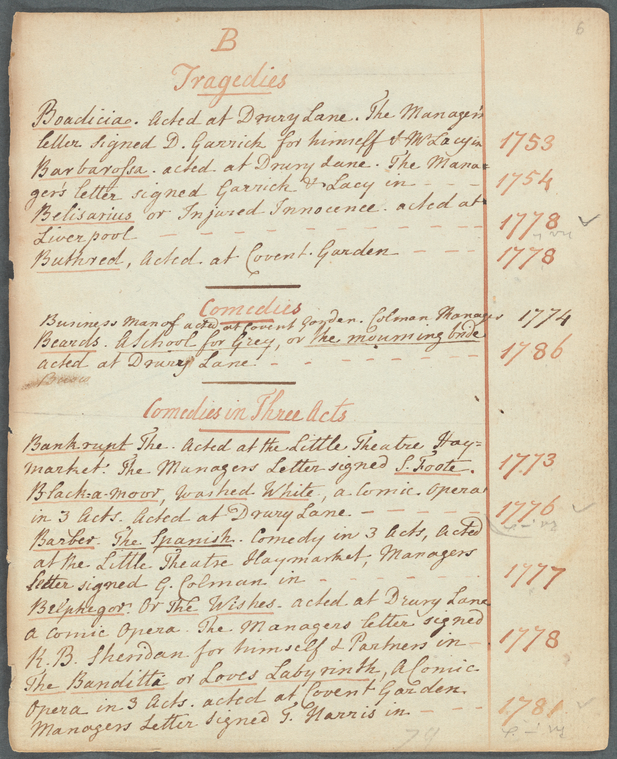 6
B
Tragedies
Boadicia. Acted at Drury Lane. The Managers
letter signed D. Garrick for himself & Mr Lacy in 1753
Barbarossa. acted at Drury Lane. The Mana-
ger's letter signed Garrick & Lacy in - - - 1754
Belisarius or Injured Innocence. acted at
Liverpool - - - - - - - - 1778
Buthred, Acted. at Covent. Garden - - - 1778
Comedies
Business Man of acted at Covent Gorden. Colman Manager 1774
Beards. A School for Grey, or the mourning bride
acted at Drury Lane - - - - - - 1786
Comedies in Three Acts
Bankrupt The. Acted at the Little Theatre Hay=
market. The Managers Letter signed S. Foote. 1773
Black-a-moor, washed White, a Comic. Opera
in 3 Acts. Acted at Drury Lane - - - - - 1776
Barber The Spanish. Comedy in 3 Acts, Acted
at the Little Theatre Haymarket, Managers
letter signed G. Colman in - - - - 1777
Belphegor. Or The Wishes. acted at Drury Lane
a Comic Opera. The Managers letter signed
R. B. Sheridan for himself & Partners in - 1778
The Banditta or Loves Labyrinth, A Comic
Opera in 3 Acts. acted at Covent Garden.
Managers Letter signed T. Harris in - - - 1781